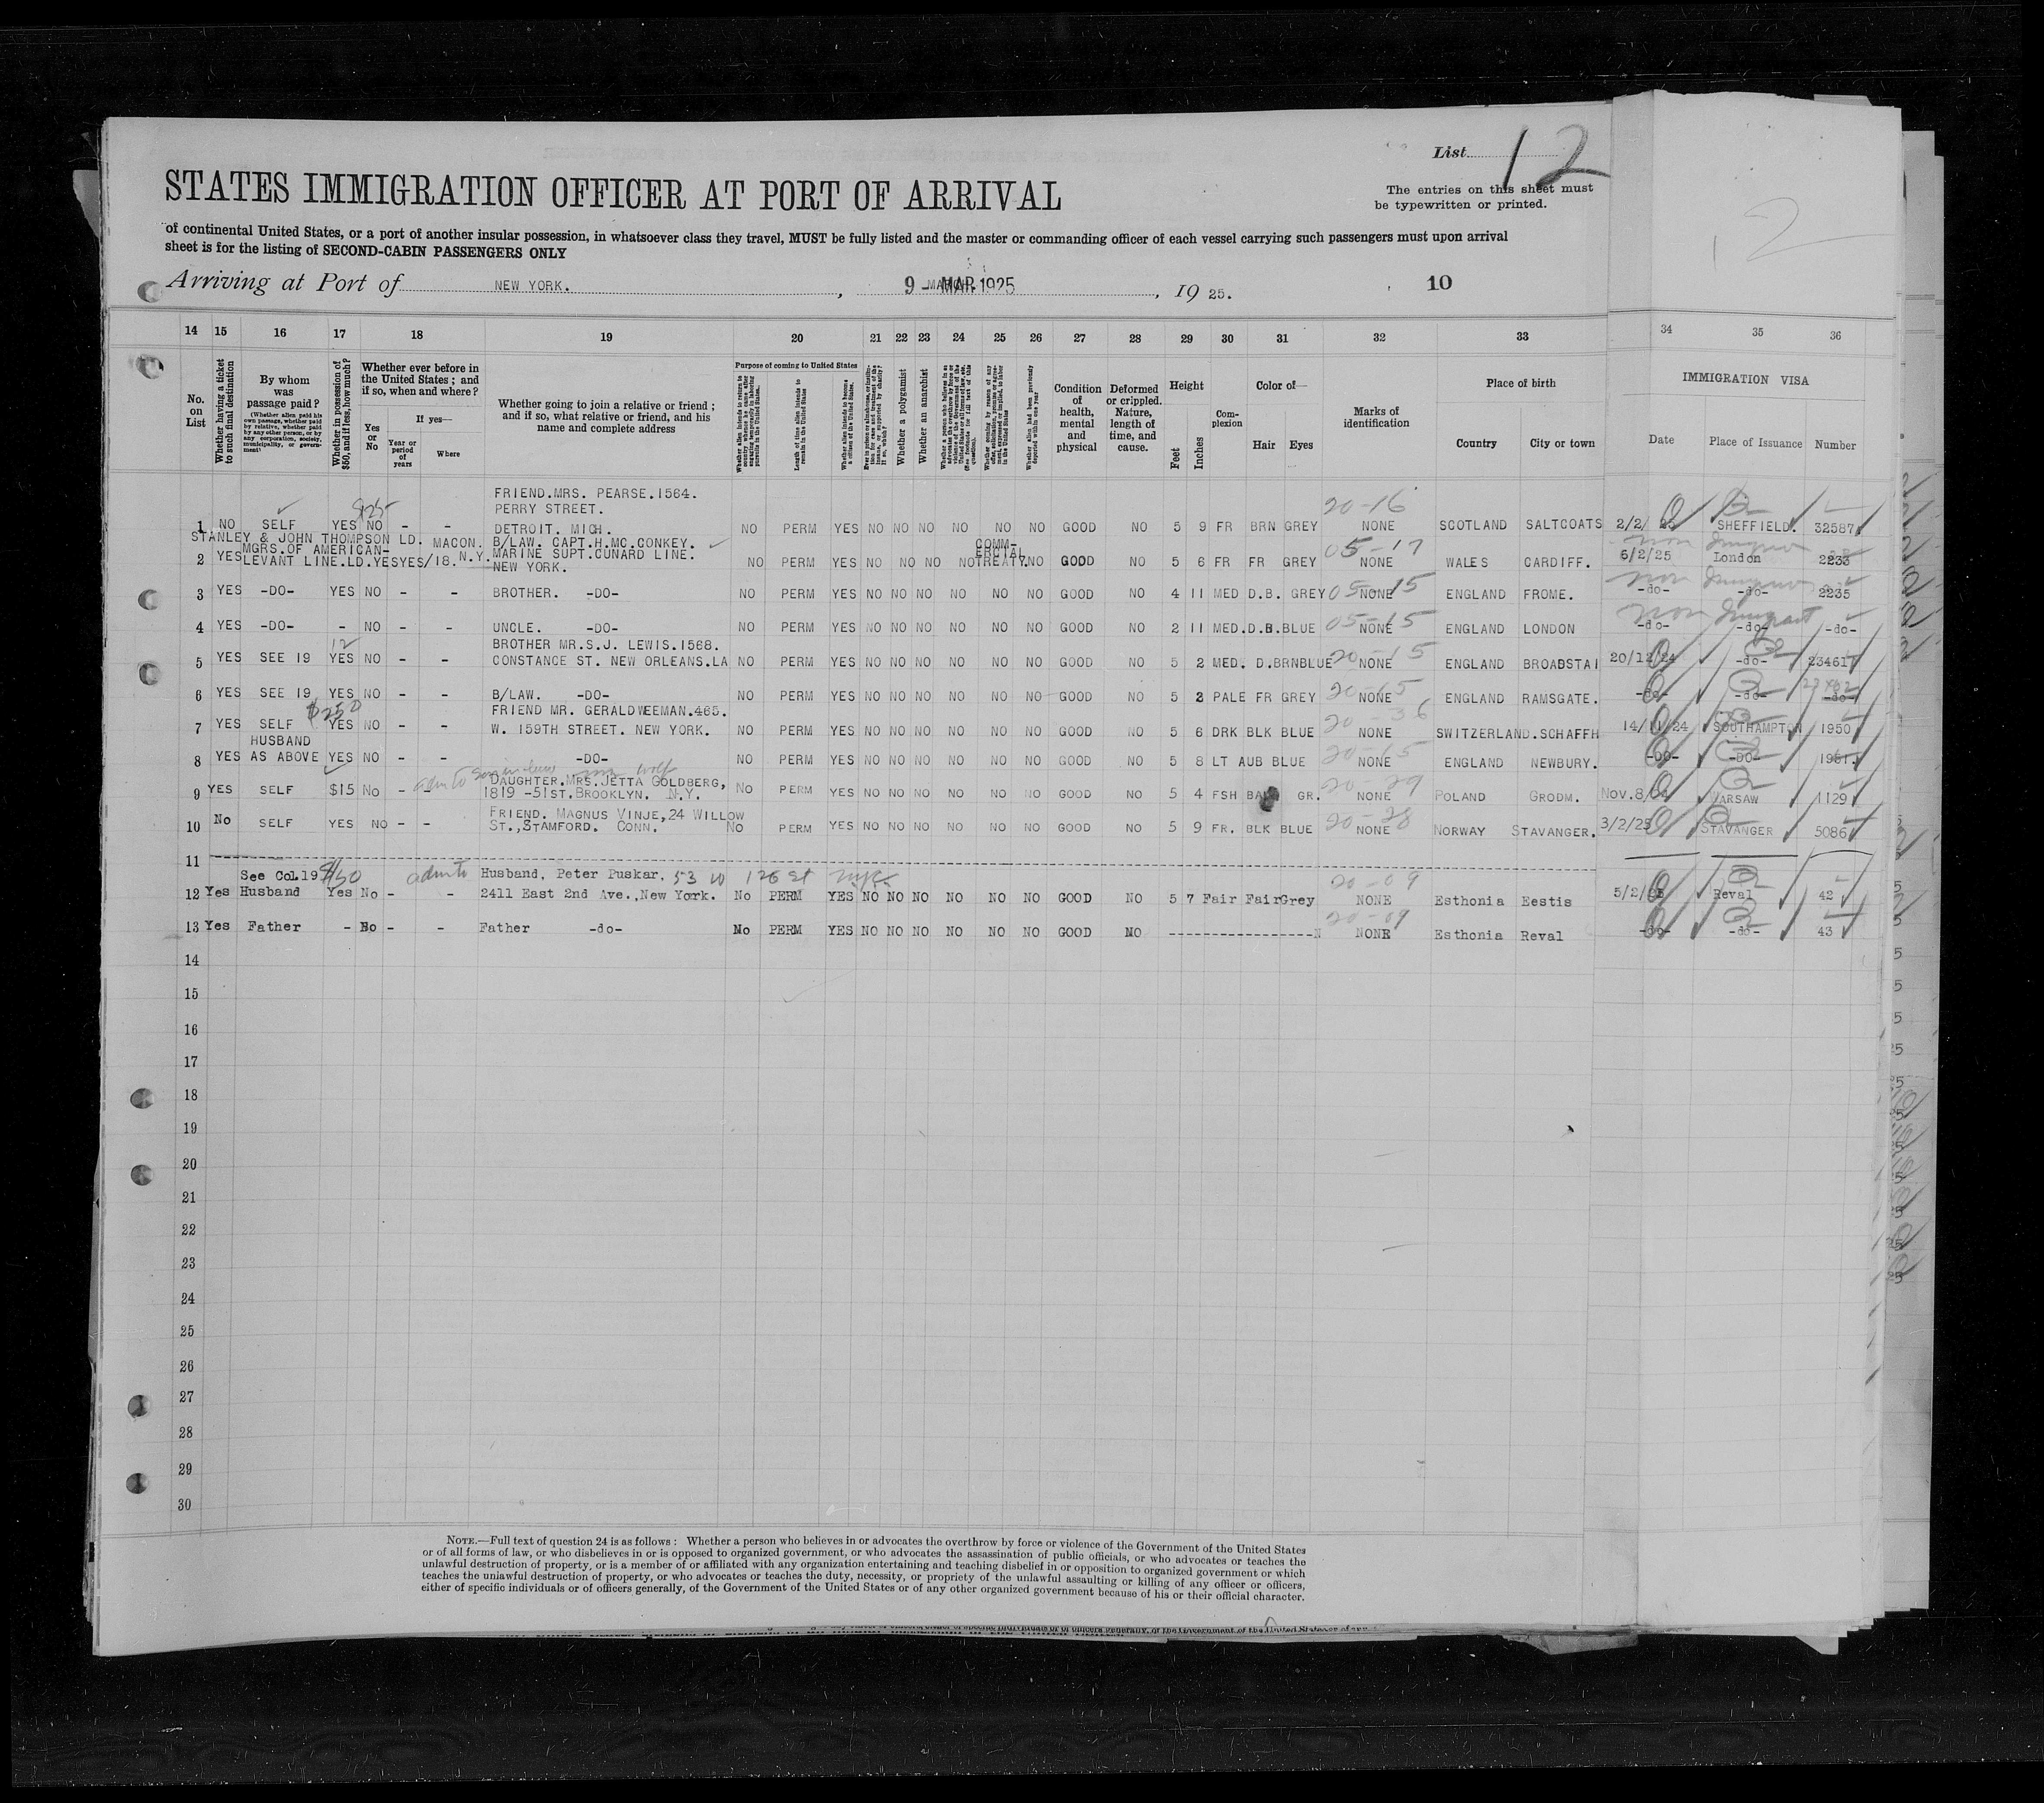 List 12
The entries on this sheet must
be typewritten or printed.
12
STATES IMMIGRATION OFFICER AT PORT OF ARRIVAL
of continental United States, or a port of another insular possession, in whatsoever class they travel, MUST be fully listed and the master or commanding officer of each vessel carrying such passengers must upon arrival
sheet is for the listing of SECOND-CABIN PASSENGERS ONLY
Arriving at Port of NEW YORK. , 9 - MAR 1925 , 19 25. 10
14 15 16 17 18 19 20 21 22 23 24 25 26 27 28 29 30 31 32 33 34 35 36
No. on List
Whether having a ticket to such final destination
By whom was passage paid?
(Whether alien paid his own passage, whether paid by relative, whether paid by any other person, or by any corporation, society, municipality, or government)
Whether in possession of $50, and if less, how much?
Whether ever before in the United States; and if so, when and where?
Yes or No
If yes—
Year or period of years
Where
Whether going to join a relative or friend; and if so, what relative or friend, and his name and complete address
Purpose of coming to United States
Length of time alien intends to remain in the United States
Whether alien intends to become a citizen of the United States
Whether a polygamist
Whether an anarchist
Condition of health, mental and physical
Deformed or crippled. Nature, length of time, and cause.
Height
Feet
Inches
Complexion
Color of—
Hair Eyes
Marks of identification
Place of birth
Country City or town
IMMIGRATION VISA
Date Place of Issuance Number
FRIEND.MRS. PEARSE.1564.
PERRY STREET. 20-16
1 NO SELF YES NO - - DETROIT. MICH. NO PERM YES NO NO NO NO NO NO GOOD NO 5 9 FR BRN GREY NONE SCOTLAND SALTCOATS 2/2/25 SHEFFIELD. 32587
STANLEY & JOHN THOMPSON LD. MACON. B/LAW. CAPT.H.MC.CONKEY. COMM-
MGRS.OF AMERICAN- MARINE SUPT.CUNARD LINE. ERCIAL 05-17
2 YES LEVANT LINE.LD.YES YES/18. N.Y. NEW YORK. NO PERM YES NO NO NO NO TREATY.NO GOOD NO 5 6 FR FR GREY NONE WALES CARDIFF. 6/2/25 London 2233
3 YES -DO- YES NO - - BROTHER. -DO- NO PERM YES NO NO NO NO NO NO GOOD NO 4 11 MED D.B. GREY 05-15 NONE ENGLAND FROME. -do- -do- 2235
4 YES -DO- - NO - - UNCLE. -DO- NO PERM YES NO NO NO NO NO NO GOOD NO 2 11 MED.D.B.BLUE 05-15 NONE ENGLAND LONDON Non Immigrant -do- -do- -do-
12 BROTHER MR.S.J. LEWIS.1568.
5 YES SEE 19 YES NO - - CONSTANCE ST. NEW ORLEANS.LA NO PERM YES NO NO NO NO NO NO GOOD NO 5 2 MED. D.BRN BLUE 20-15 NONE ENGLAND BROADSTAI 20/12/24 -do- 23461
6 YES SEE 19 YES NO - - B/LAW. -DO- NO PERM YES NO NO NO NO NO NO GOOD NO 5 2 PALE FR GREY 20-15 NONE ENGLAND RAMSGATE. -do- -do- -do-
$250 FRIEND MR. GERALDWEEMAN.465.
7 YES SELF YES NO - - W. 159TH STREET. NEW YORK. NO PERM YES NO NO NO NO NO NO GOOD NO 5 6 DRK BLK BLUE 20-36 NONE SWITZERLAND.SCHAFFH 14/11/24 SOUTHAMPTON 1950
HUSBAND
8 YES AS ABOVE YES NO - - -DO- NO PERM YES NO NO NO NO NO NO GOOD NO 5 8 LT AUB BLUE 20-15 NONE ENGLAND NEWBURY. -DO- -DO- 1951.
DAUGHTER.MRS.JETTA GOLDBERG,
9 YES SELF $15 No - - 1819 -51ST.BROOKLYN. N.Y. No PERM YES NO NO NO NO NO NO GOOD NO 5 4 FSH GR. 20-29 NONE POLAND GRODM. Nov.8/24 WARSAW 1129
FRIEND. MAGNUS VINJE,24 WILLOW
10 No SELF YES NO - - ST.,STAMFORD. CONN. No PERM YES NO NO NO NO NO NO GOOD NO 5 9 FR. BLK BLUE 20-28 NONE NORWAY STAVANGER. 3/2/25 STAVANGER 5086
11
See Col.19 $150 admto Husband, Peter Puskar, 53 W 126 St NYC 20-09
12 Yes Husband Yes No - - 2411 East 2nd Ave.,New York. No PERM YES NO NO NO NO NO NO GOOD NO 5 7 Fair Fair Grey NONE Esthonia Eestis 5/2/25 Reval 42
13 Yes Father - No - - Father -do- No PERM YES NO NO NO NO NO NO GOOD NO 20-09 NONE Esthonia Reval -do- -do- 43
14
15
16
17
18
19
20
21
22
23
24
25
26
27
28
29
30
NOTE.—Full text of question 24 is as follows: Whether a person who believes in or advocates the overthrow by force or violence of the Government of the United States
or of all forms of law, or who disbelieves in or is opposed to organized government, or who advocates the assassination of public officials, or who advocates or teaches the
unlawful destruction of property, or is a member of or affiliated with any organization entertaining and teaching disbelief in or opposition to organized government or which
teaches the unlawful destruction of property, or who advocates or teaches the duty, necessity, or propriety of the unlawful assaulting or killing of any officer or officers,
either of specific individuals or of officers generally, of the Government of the United States or of any other organized government because of his or their official character.